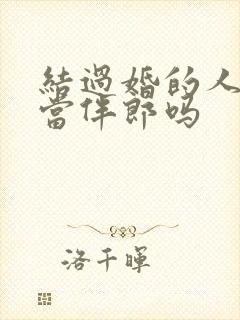 結過婚的人
當伴郎嗎
洛千暉